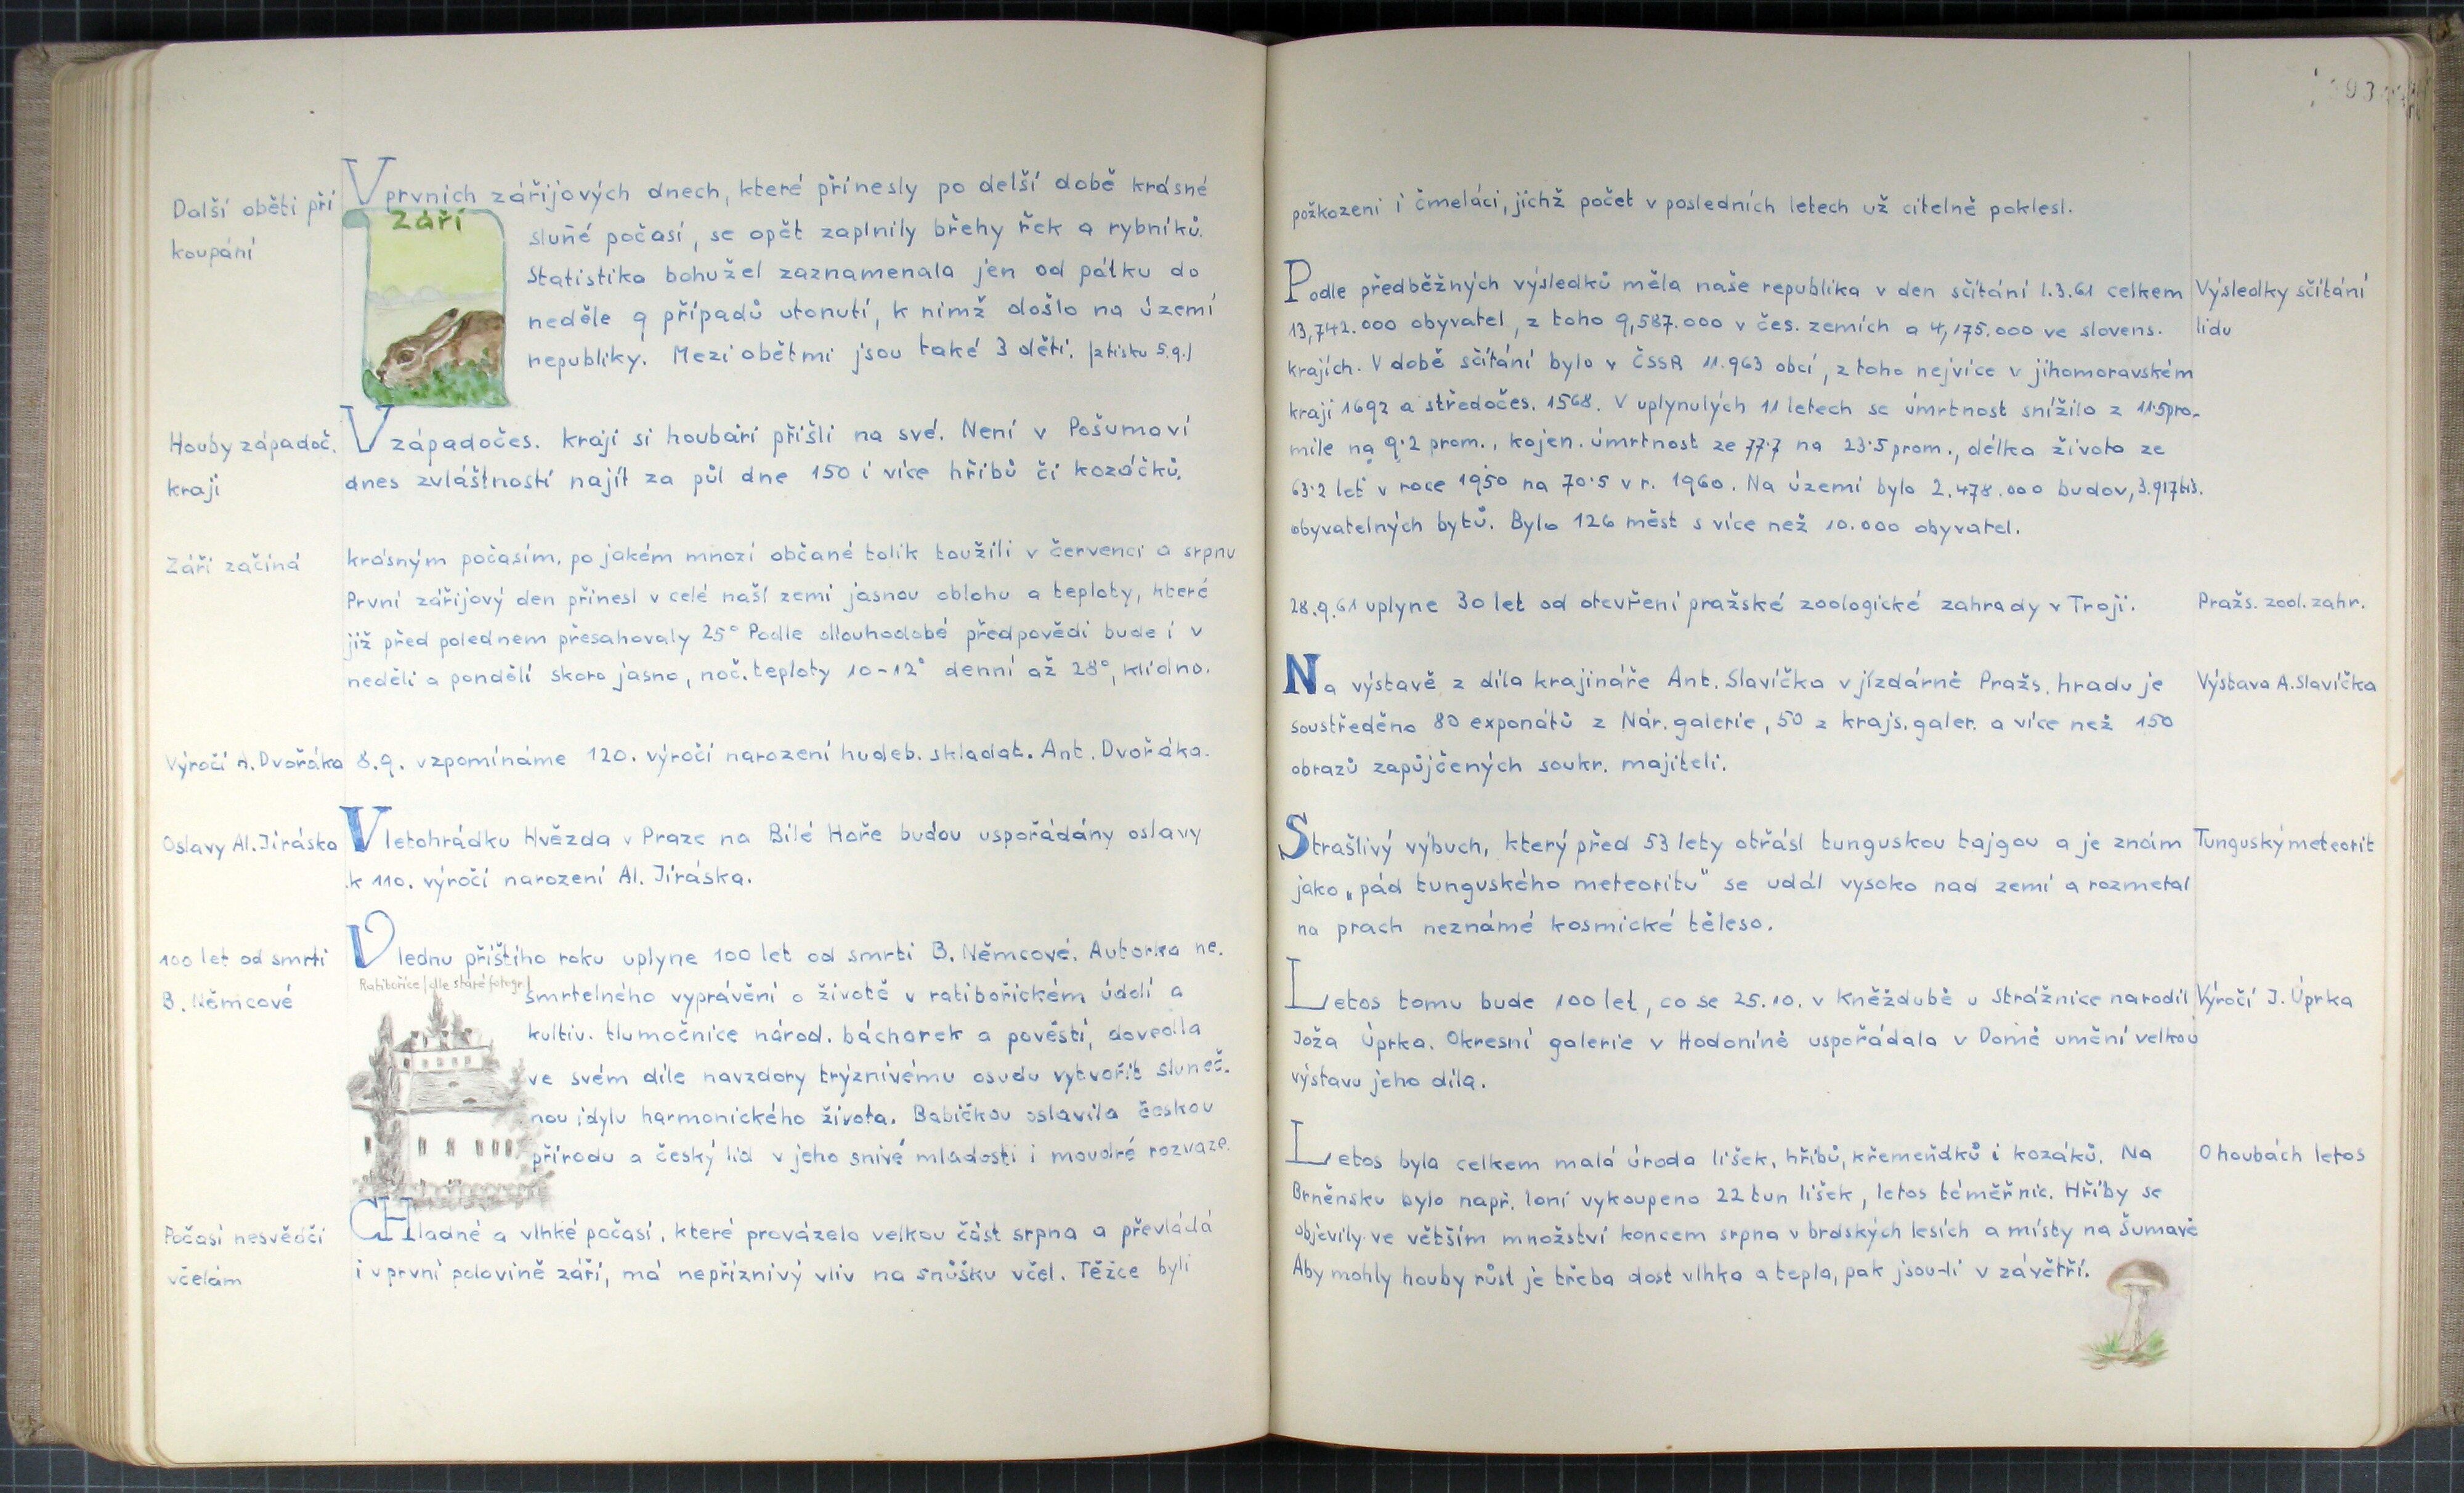 Další oběti při
koupání
V prvních zářijových dnech, které přinesly po delší době krásné
Září
sluňé počasí, se opět zaplnily břehy řek a rybníků.
Statistika bohužel zaznamenala jen od pátku do
neděle 9 případů utonutí, k nimž došlo na území
republiky. Mezi obětmi jsou také 3 děti. /z tisku 5.9./
Houby západoč.
kraji
V západočes. kraji si houbaři přišli na své. Není v Pošumaví
dnes zvláštností najít za půl dne 150 i více hřibů či kozáčků.
Září začíná
krásným počasím, po jakém mnozí občané tolik toužili v červenci a srpnu
První zářijový den přinesl v celé naší zemi jasnou oblohu a teploty, které
již před polednem přesahovaly 25° Podle dlouhodobé předpovědi bude i v
neděli a pondělí skoro jasno, noč. teploty 10-12° denní až 28°, klidno.
Výročí A. Dvořáka
8.9. vzpomínáme 120. výročí narození hudeb. skladat. Ant. Dvořáka.
Oslavy Al. Jiráska
V letohrádku Hvězda v Praze na Bílé Hoře budou uspořádány oslavy
k 110. výročí narození Al. Jiráska.
100 let od smrti
B. Němcové
V lednu příštího roku uplyne 100 let od smrti B. Němcové. Autorka ne-
Ratibořice/dle staré fotogr/
smrtelného vyprávění o životě v ratibořickém údolí a
kultiv. tlumočnice národ. báchorek a pověstí, dovedla
ve svém díle navzdory trýznivému osudu vytvořit sluneč-
nou idylu harmonického života. Babičkou oslavila českou
přírodu a český lid v jeho snivé mladosti i moudré rozvaze.
Počasí nesvědčí
včelám
CHladné a vlhké počasí, které provázelo velkou část srpna a převládá
i v první polovině září, má nepříznivý vliv na snůšku včel. Těžce byli
požkozeni i čmeláci, jichž počet v posledních letech už citelně poklesl.
Podle předběžných výsledků měla naše republika v den sčítání 1.3.61 celkem
13,742.000 obyvatel, z toho 9,587.000 v čes. zemích a 4,175.000 ve slovens.
krajích. V době sčítání bylo v ČSSR 11.963 obcí, z toho nejvíce v jihomoravském
kraji 1692 a středočes. 1568. V uplynulých 11 letech se úmrtnost snížila z 11·5pro-
mile na 9·2 prom., kojen. úmrtnost ze 77·7 na 23·5 prom., délka života ze
63·2 let v roce 1950 na 70·5 v r. 1960. Na území bylo 2.478.000 budov, 3.917tis.
obyvatelných bytů. Bylo 126 měst s více než 10.000 obyvatel.
Výsledky sčítání
lidu
28.9.61 uplyne 30 let od otevření pražské zoologické zahrady v Troji.
Pražs. zool. zahr.
Na výstavě z díla krajináře Ant. Slavíčka v jízdárně Pražs. hradu je
soustředěno 80 exponátů z Nár. galerie, 50 z krajs. galer. a více než 150
obrazů zapůjčených soukr. majiteli.
Výstava A. Slavíčka
Strašlivý výbuch, který před 53 lety otřásl tunguskou tajgou a je znám
jako „pád tunguského meteoritu" se udál vysoko nad zemí a rozmetal
na prach neznámé kosmické těleso.
Tunguský meteorit
Letos tomu bude 100 let, co se 25.10. v Kněždubě u Strážnice narodil
Joža Úprka. Okresní galerie v Hodoníně uspořádala v Domě umění velkou
výstavu jeho díla.
Výročí J. Úprka
Letos byla celkem malá úroda lišek, hřibů, křemeňďků i kozáků. Na
Brněnsku bylo např. loni vykoupeno 22 tun lišek, letos téměř nic. Hřiby se
objevily ve větším množství koncem srpna v brdských lesích a místy na Šumavě
Aby mohly houby růst je třeba dost vlhka a tepla, pak jsou-li v závětří.
O houbách letos